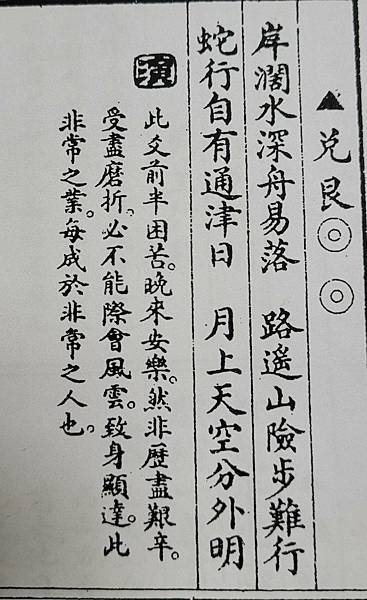 ▲兌艮◎◎
岸濶水深舟易落　路遙山險步難行
蛇行自有通津日　月上天空分外明
演
此爻前半困苦。晚來安樂。然非歷盡艱辛。
受盡磨折。必不能際會風雲。致身顯達。此
非常之業。每成於非常之人也。